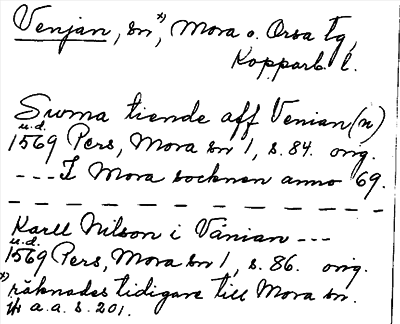 Venjan, sn,*) Mora o. Orsa tg,
Kopparb. l.
Suma tiende aff Venian(n)
u.d.
1569 Pers, Mora sn 1, s. 84. orig.
---I Mora socknen anno 69.
Karll Nilson i Vänian ---
u.d.
1569 Pers, Mora sn 1, s. 86. orig.
*) räknades tidigare till Mora sn.
a.a. s. 201.